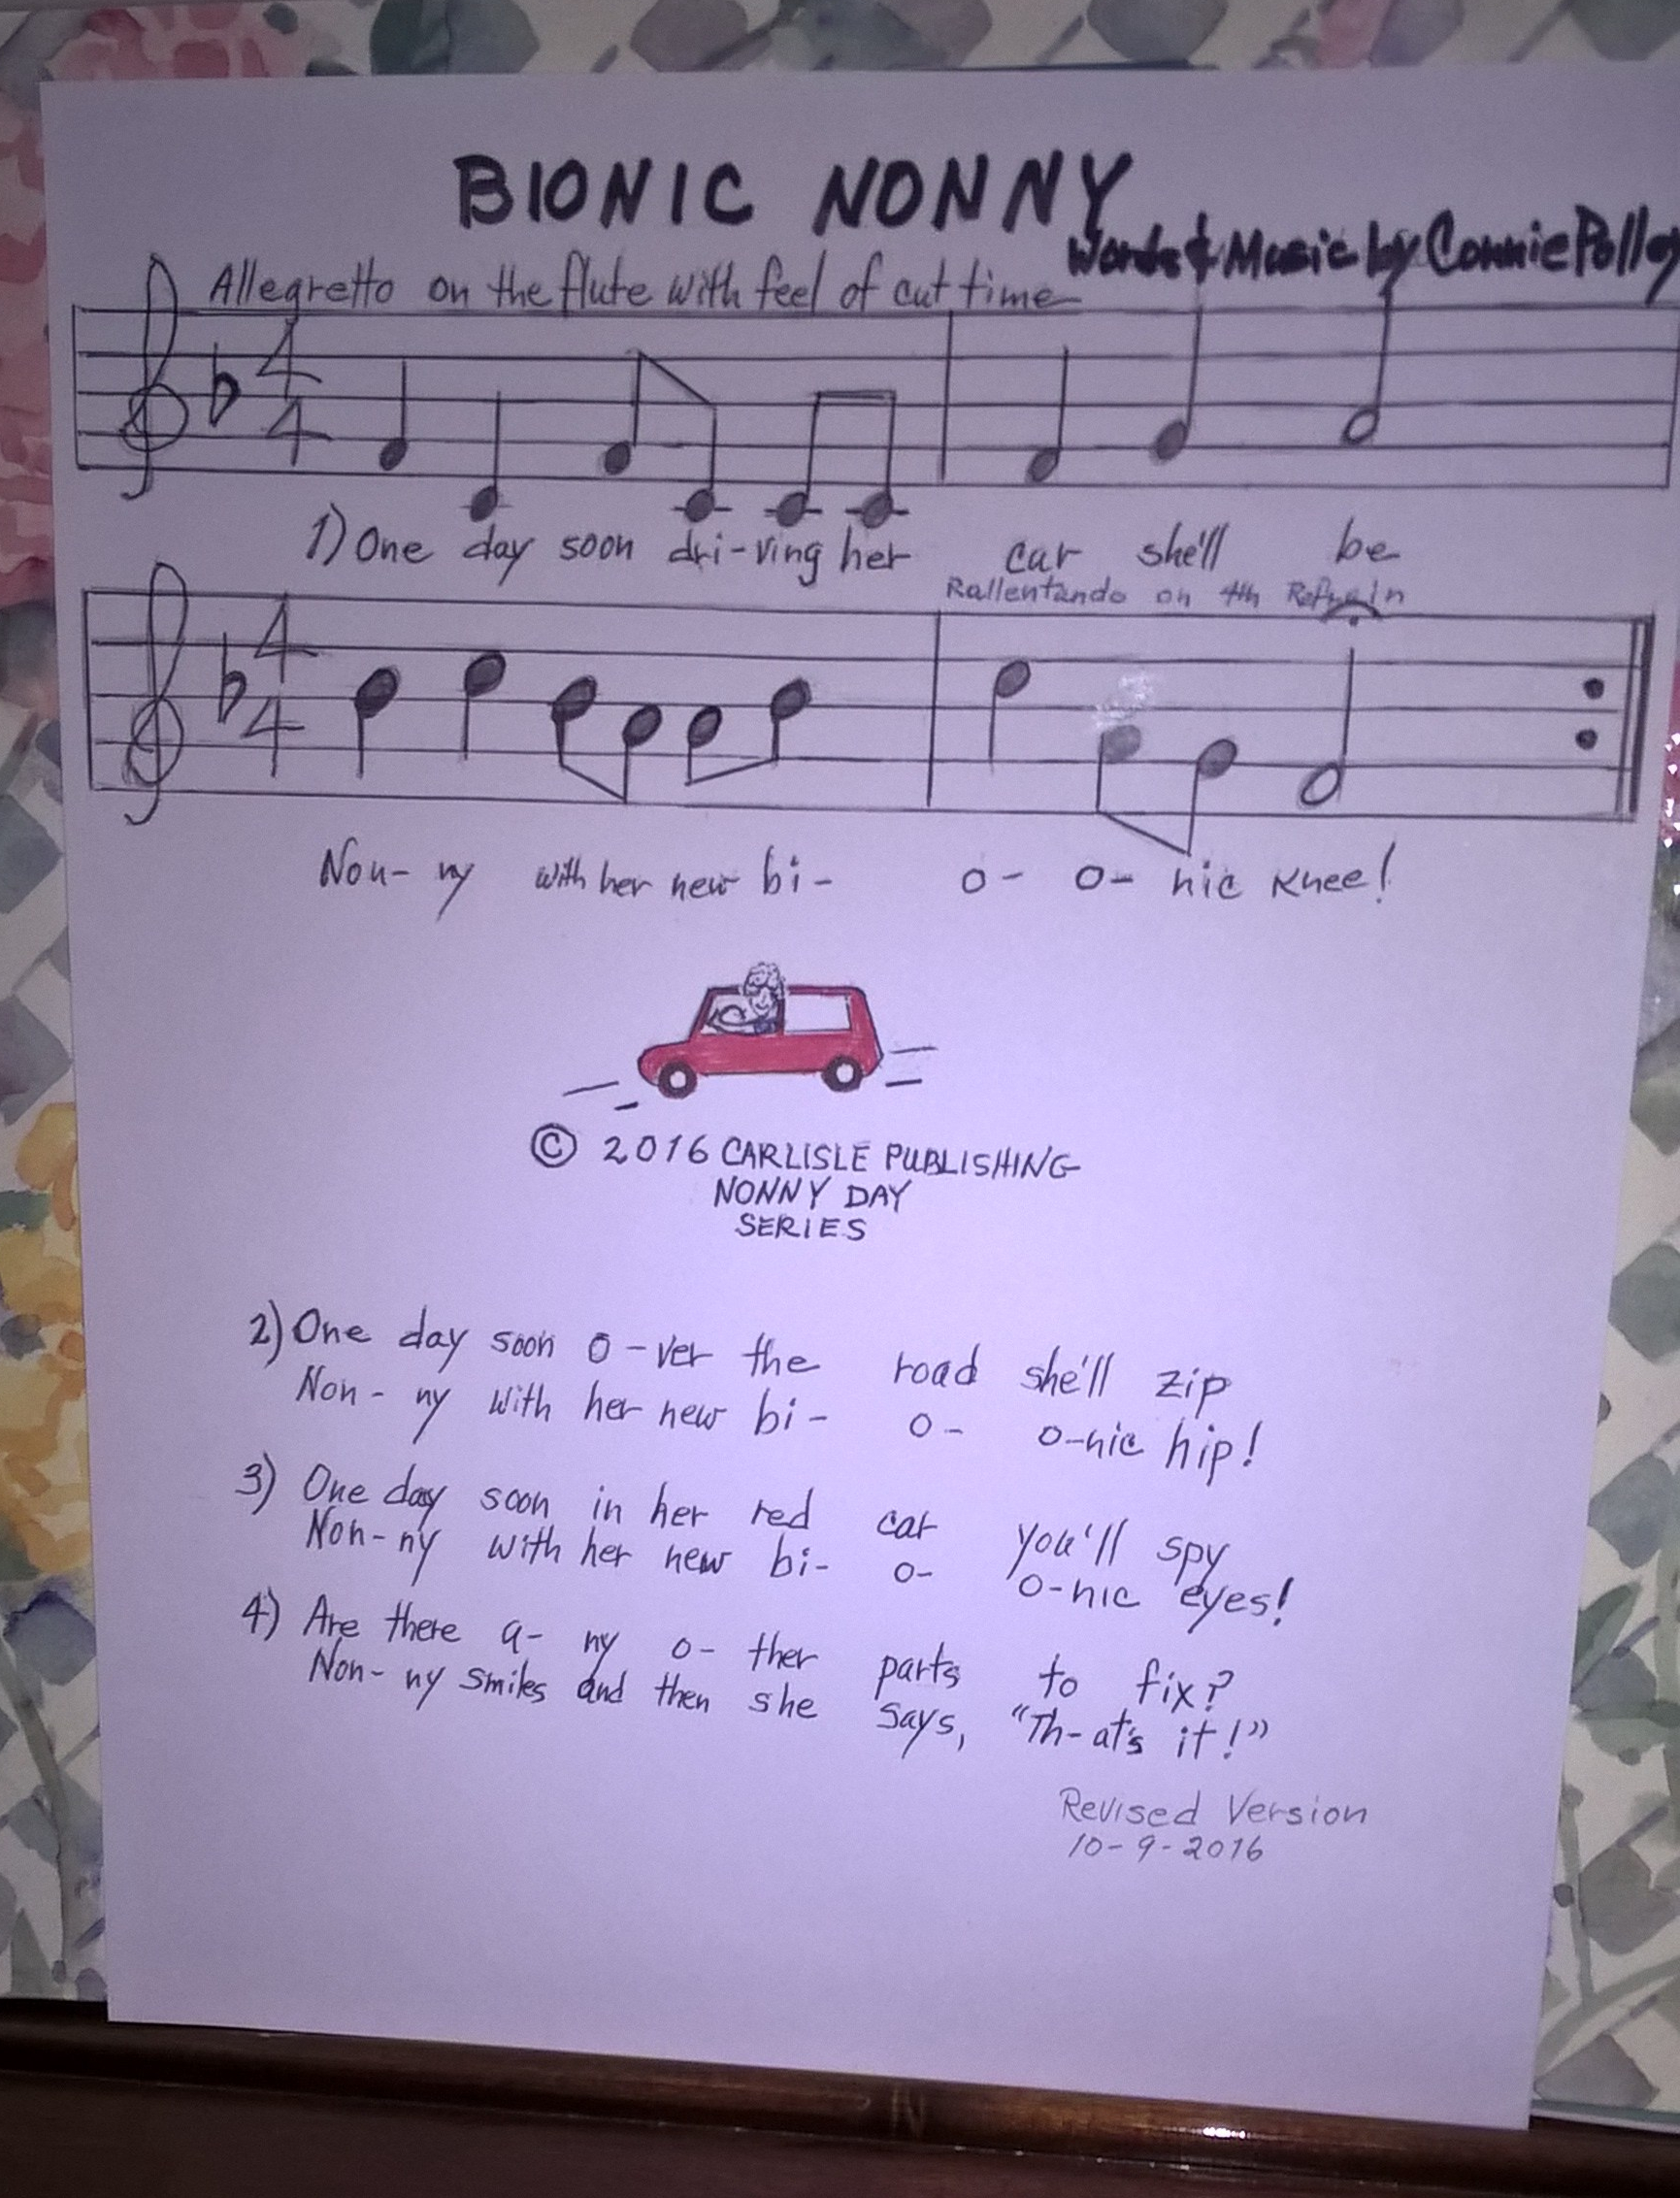 BIONIC NONNY
Words & Music by Connie Polley
Allegretto on the flute with feel of cut time
4
4
1) One day soon dri-ving her car she'll be
Rallentando on 4th Refrain
4
4
Non- ny with her new bi- o- o- nic knee!
© 2016 CARLISLE PUBLISHING
NONNY DAY
SERIES
2) One day soon o-ver the road she'll zip
Non- ny with her new bi- o- o-nic hip!
3) One day soon in her red car you'll spy
Non-ny with her new bi- o- o-nic eyes!
4) Are there a- ny o- ther parts to fix?
Non- ny smiles and then she says, "Th- at's it!"
Revised Version
10-9-2016